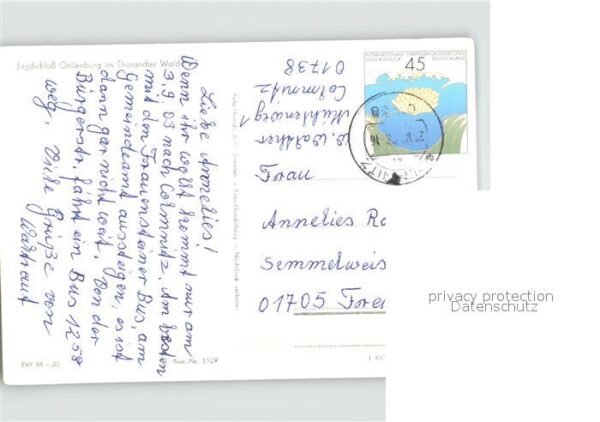 Jagdschloß Grillenburg im Tharandter Wald
Liebe Annelies!
Wenn ihr wollt kommt nur am
3.9.03 nach Colmnitz. Am besten
mit den Frauensteiner Bus, am
Gemeindeamt aussteigen, es ist
dann gar nicht weit. Von der
Bürgerstr. fährt ein Bus 12.58
weg. Viele Grüße von
Waltraut
EVP M -,25
Best.-Nr. 1529
W. Walther
Mühlenweg 1
Colmnitz
01738
INTERNATIONALE GARTENBAUAUSSTELLUNG
2003 ROSTOCK DEUTSCHLAND
45
Frau
Annelies Ro
Semmelweis
01705 Frei
privacy protection
Datenschutz